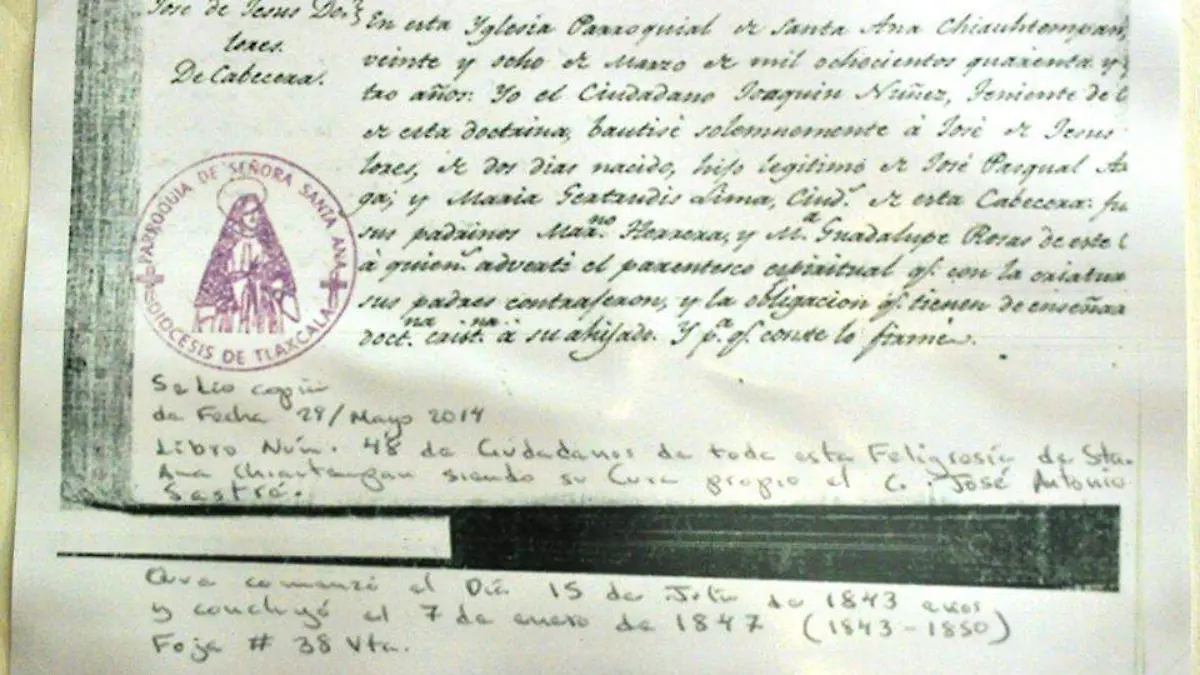 José de Jesus Do-
lores.
De Cabecera.
En esta Yglesia Parroquial de Santa Ana Chiauhtempan,
veinte y ocho de Marzo de mil ochocientos quarenta y
tro años: Yo el Ciudadano Joaquin Nuñez, Teniente de C
de esta doctrina, bautisé solemnemente á José de Jesus
lores, de dos dias nacido, hijo legitimo de José Pasqual
ga, y Maria Gertrudis Lima, Ciud.s de esta Cabecera: fu
sus padrinos Mar.no Herrera, y M.a Guadalupe Rosas de este
á quien.s adverti el parentesco espiritual q.e con la criatura
sus padres contrajeron, y la obligacion q.e tienen de enseñar
doct.na crist.na á su ahijado. Y p.a q.e conste lo firmé.
PARROQUIA DE SEÑORA SANTA ANA
DIOCESIS DE TLAXCALA
Se dio copia
de Fecha 28/Mayo 2014
Libro Núm. 48 de Ciudadanos de toda esta Feligresía de Sta.
Ana Chiautempan siendo su Cura propio el C. José Antonio
Sastré.
Que comenzó el Día 15 de Julio de 1843 años
y concluyó el 7 de enero de 1847 (1843-1850)
Foja # 38 Vta.